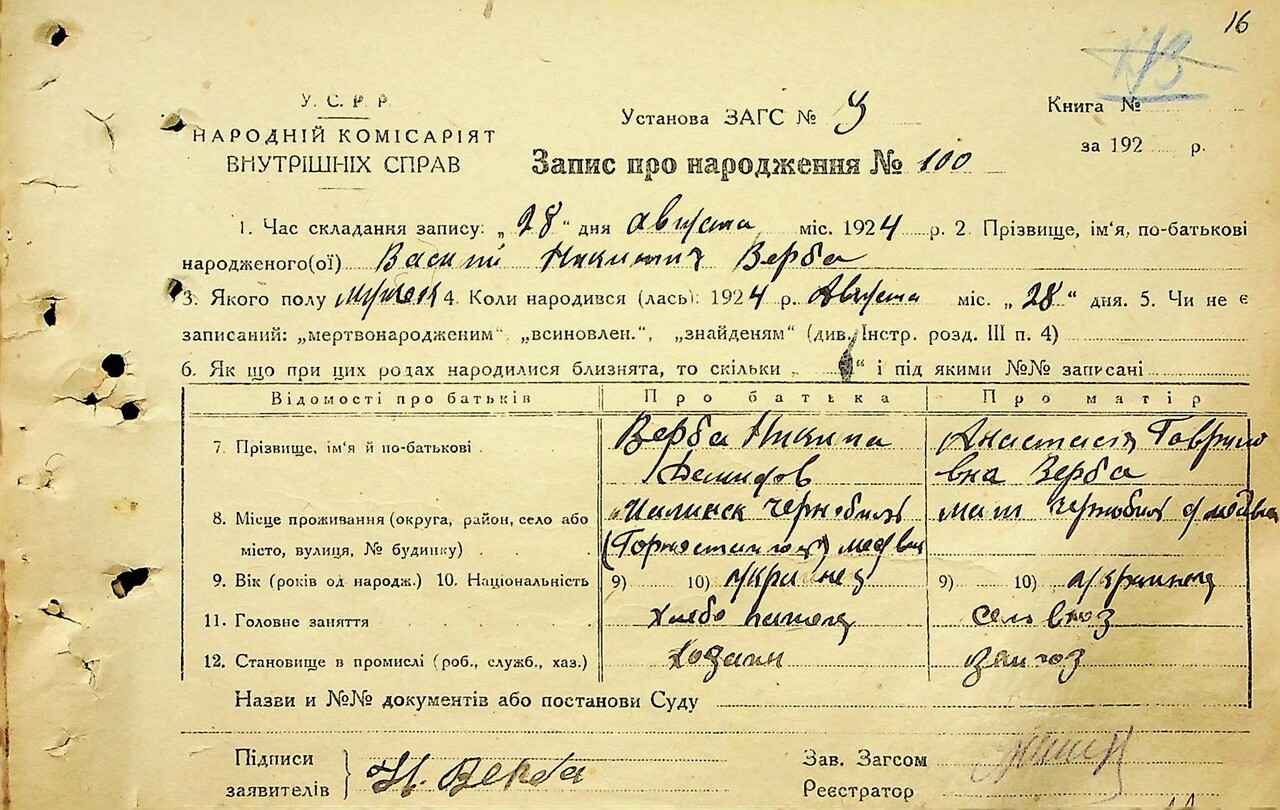 16
У. С. Р. Р.
НАРОДНІЙ КОМІСАРІЯТ
ВНУТРІШНІХ СПРАВ
Установа ЗАГС №
Книга №
за 192 р.
Запис про народження № 100
1. Час складання запису: „ 28 “ дня Августа міс. 1924 р. 2. Прізвище, ім'я, по-батькові
народженого(ої) Василій Никитич Верба
3. Якого полу 4. Коли народився (лась): 1924 р. Августа міс. „ 28 “ дня. 5. Чи не є
записаний: „мертвонародженим“, „всиновлен.“, „знайденям“ (див. Інстр. розд. III п. 4)
6. Як що при цих родах народилися близнята, то скільки „ “ і під якими №№ записані
Відомості про батьків Про батька Про матір
7. Прізвище, ім'я й по-батькові Верба Никита Анастасія Гаврило
Демидов вна Верба
8. Місце проживання (округа, район, село або
місто, вулиця, № будинку)
9. Вік (років од народж.) 10. Національність 9) 10) украинец 9) 10)
11. Головне заняття
12. Становище в промислі (роб., служб., хаз.) Хозаин
Назви и №№ документів або постанови Суду
Підписи
заявителів Н. Верба
Зав. Загсом
Реєстратор